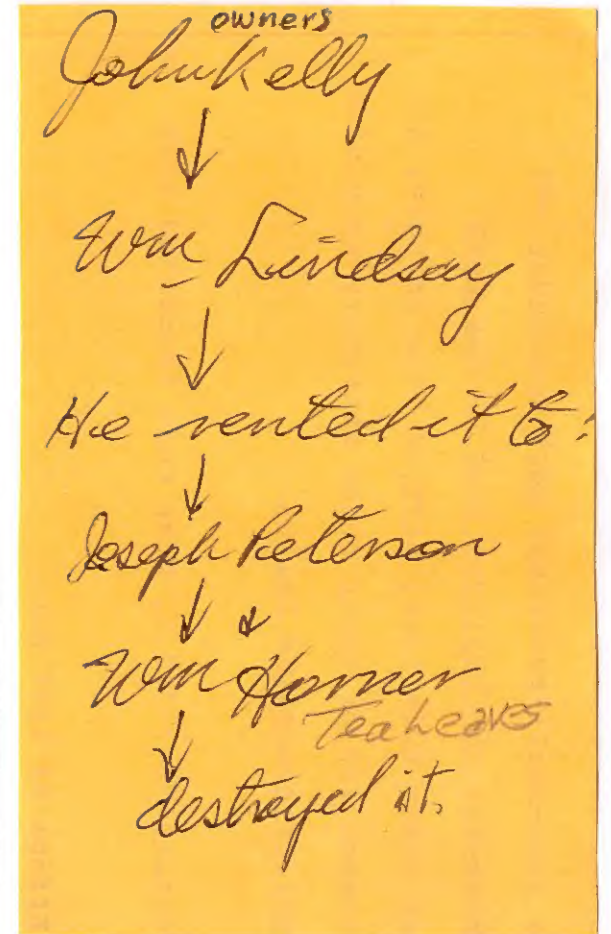 owners
John Kelly
↓
Wm Lindsay
↓
He rented it to:
↓
Joseph Peterson
↓ ↓
Wm Horner
Tea Leaves
↓
destroyed it.